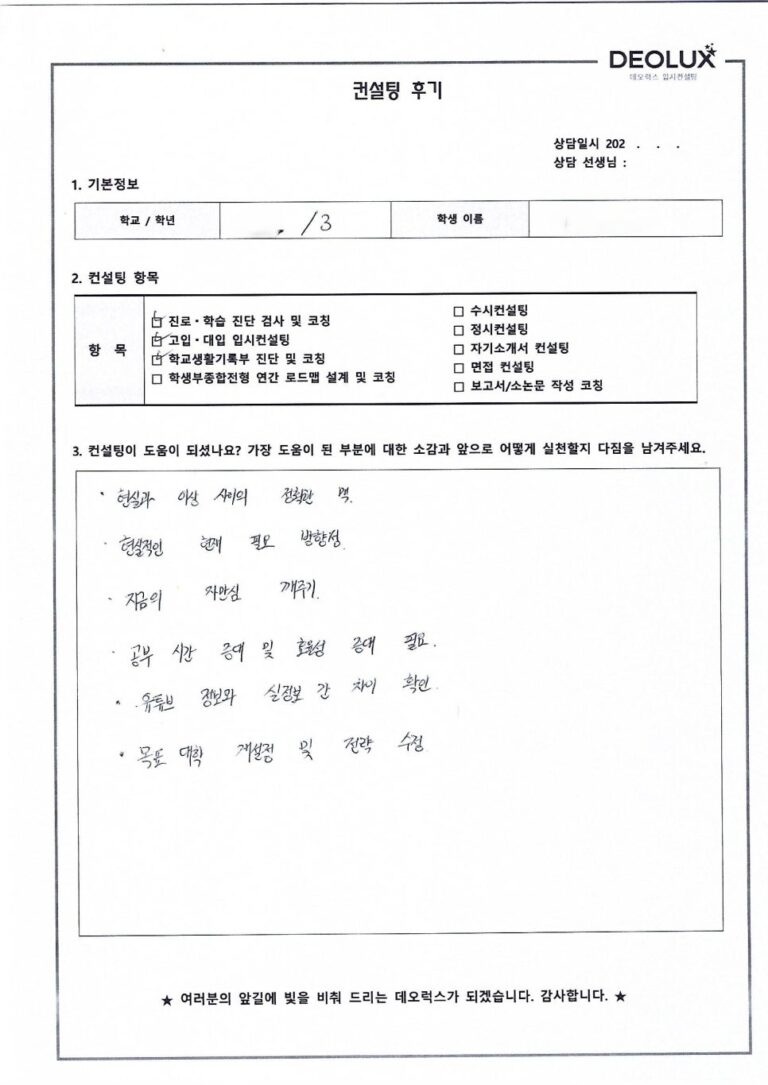 DEOLUX
데오럭스 입시컨설팅
컨설팅 후기
상담일시 202 . . .
상담 선생님 :
1. 기본정보
학교 / 학년 . /3 학생 이름
2. 컨설팅 항목
항 목
진로·학습 진단 검사 및 코칭
고입·대입 입시컨설팅
학교생활기록부 진단 및 코칭
학생부종합전형 연간 로드맵 설계 및 코칭
수시컨설팅
정시컨설팅
자기소개서 컨설팅
면접 컨설팅
보고서/소논문 작성 코칭
3. 컨설팅이 도움이 되셨나요? 가장 도움이 된 부분에 대한 소감과 앞으로 어떻게 실천할지 다짐을 남겨주세요.
· 현실과 이상 사이의 정확한 벽.
· 현실적인 현재 필요 방향정.
· 지금의 자만심 깨주기.
· 공부 시간 증대 및 효율성 증대 필요.
· 유튜브 정보와 실정보 간 차이 확인.
· 목표 대학 재설정 및 전략 수정
★ 여러분의 앞길에 빛을 비춰 드리는 데오럭스가 되겠습니다. 감사합니다. ★